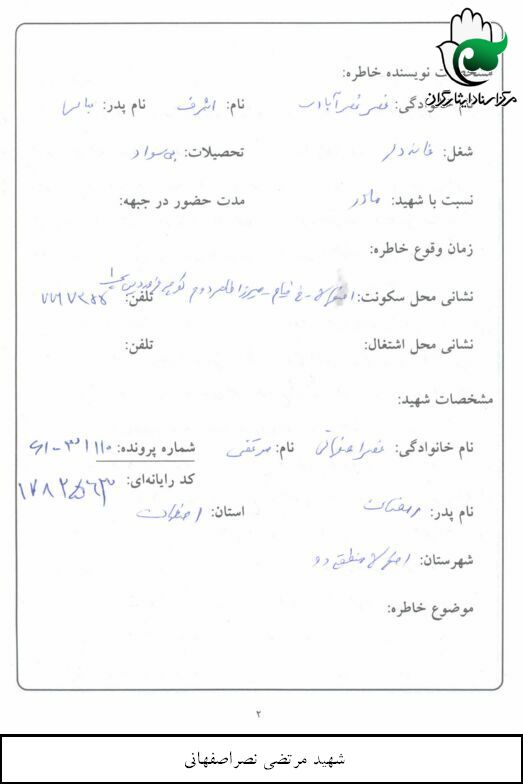 مرکز اسناد ایثارگران
مشخصات نویسنده خاطره:
نام خانوادگی: نصر نصرآبادی نام: اشرف نام پدر: عباس
شغل: خانه دار تحصیلات: بی سواد
نسبت با شهید: مادر مدت حضور در جبهه:
زمان وقوع خاطره:
نشانی محل سکونت: اصفهان - خ خیام - میرزا طاهر دوم تلفن:
نشانی محل اشتغال: تلفن:
مشخصات شهید:
نام خانوادگی: نصراصفهانی نام: مرتضی شماره پرونده:
کد رایانه‌ای:
نام پدر: رمضان استان: اصفهان
شهرستان: اصفهان منطقه دو
موضوع خاطره:
۲
شهید مرتضی نصراصفهانی